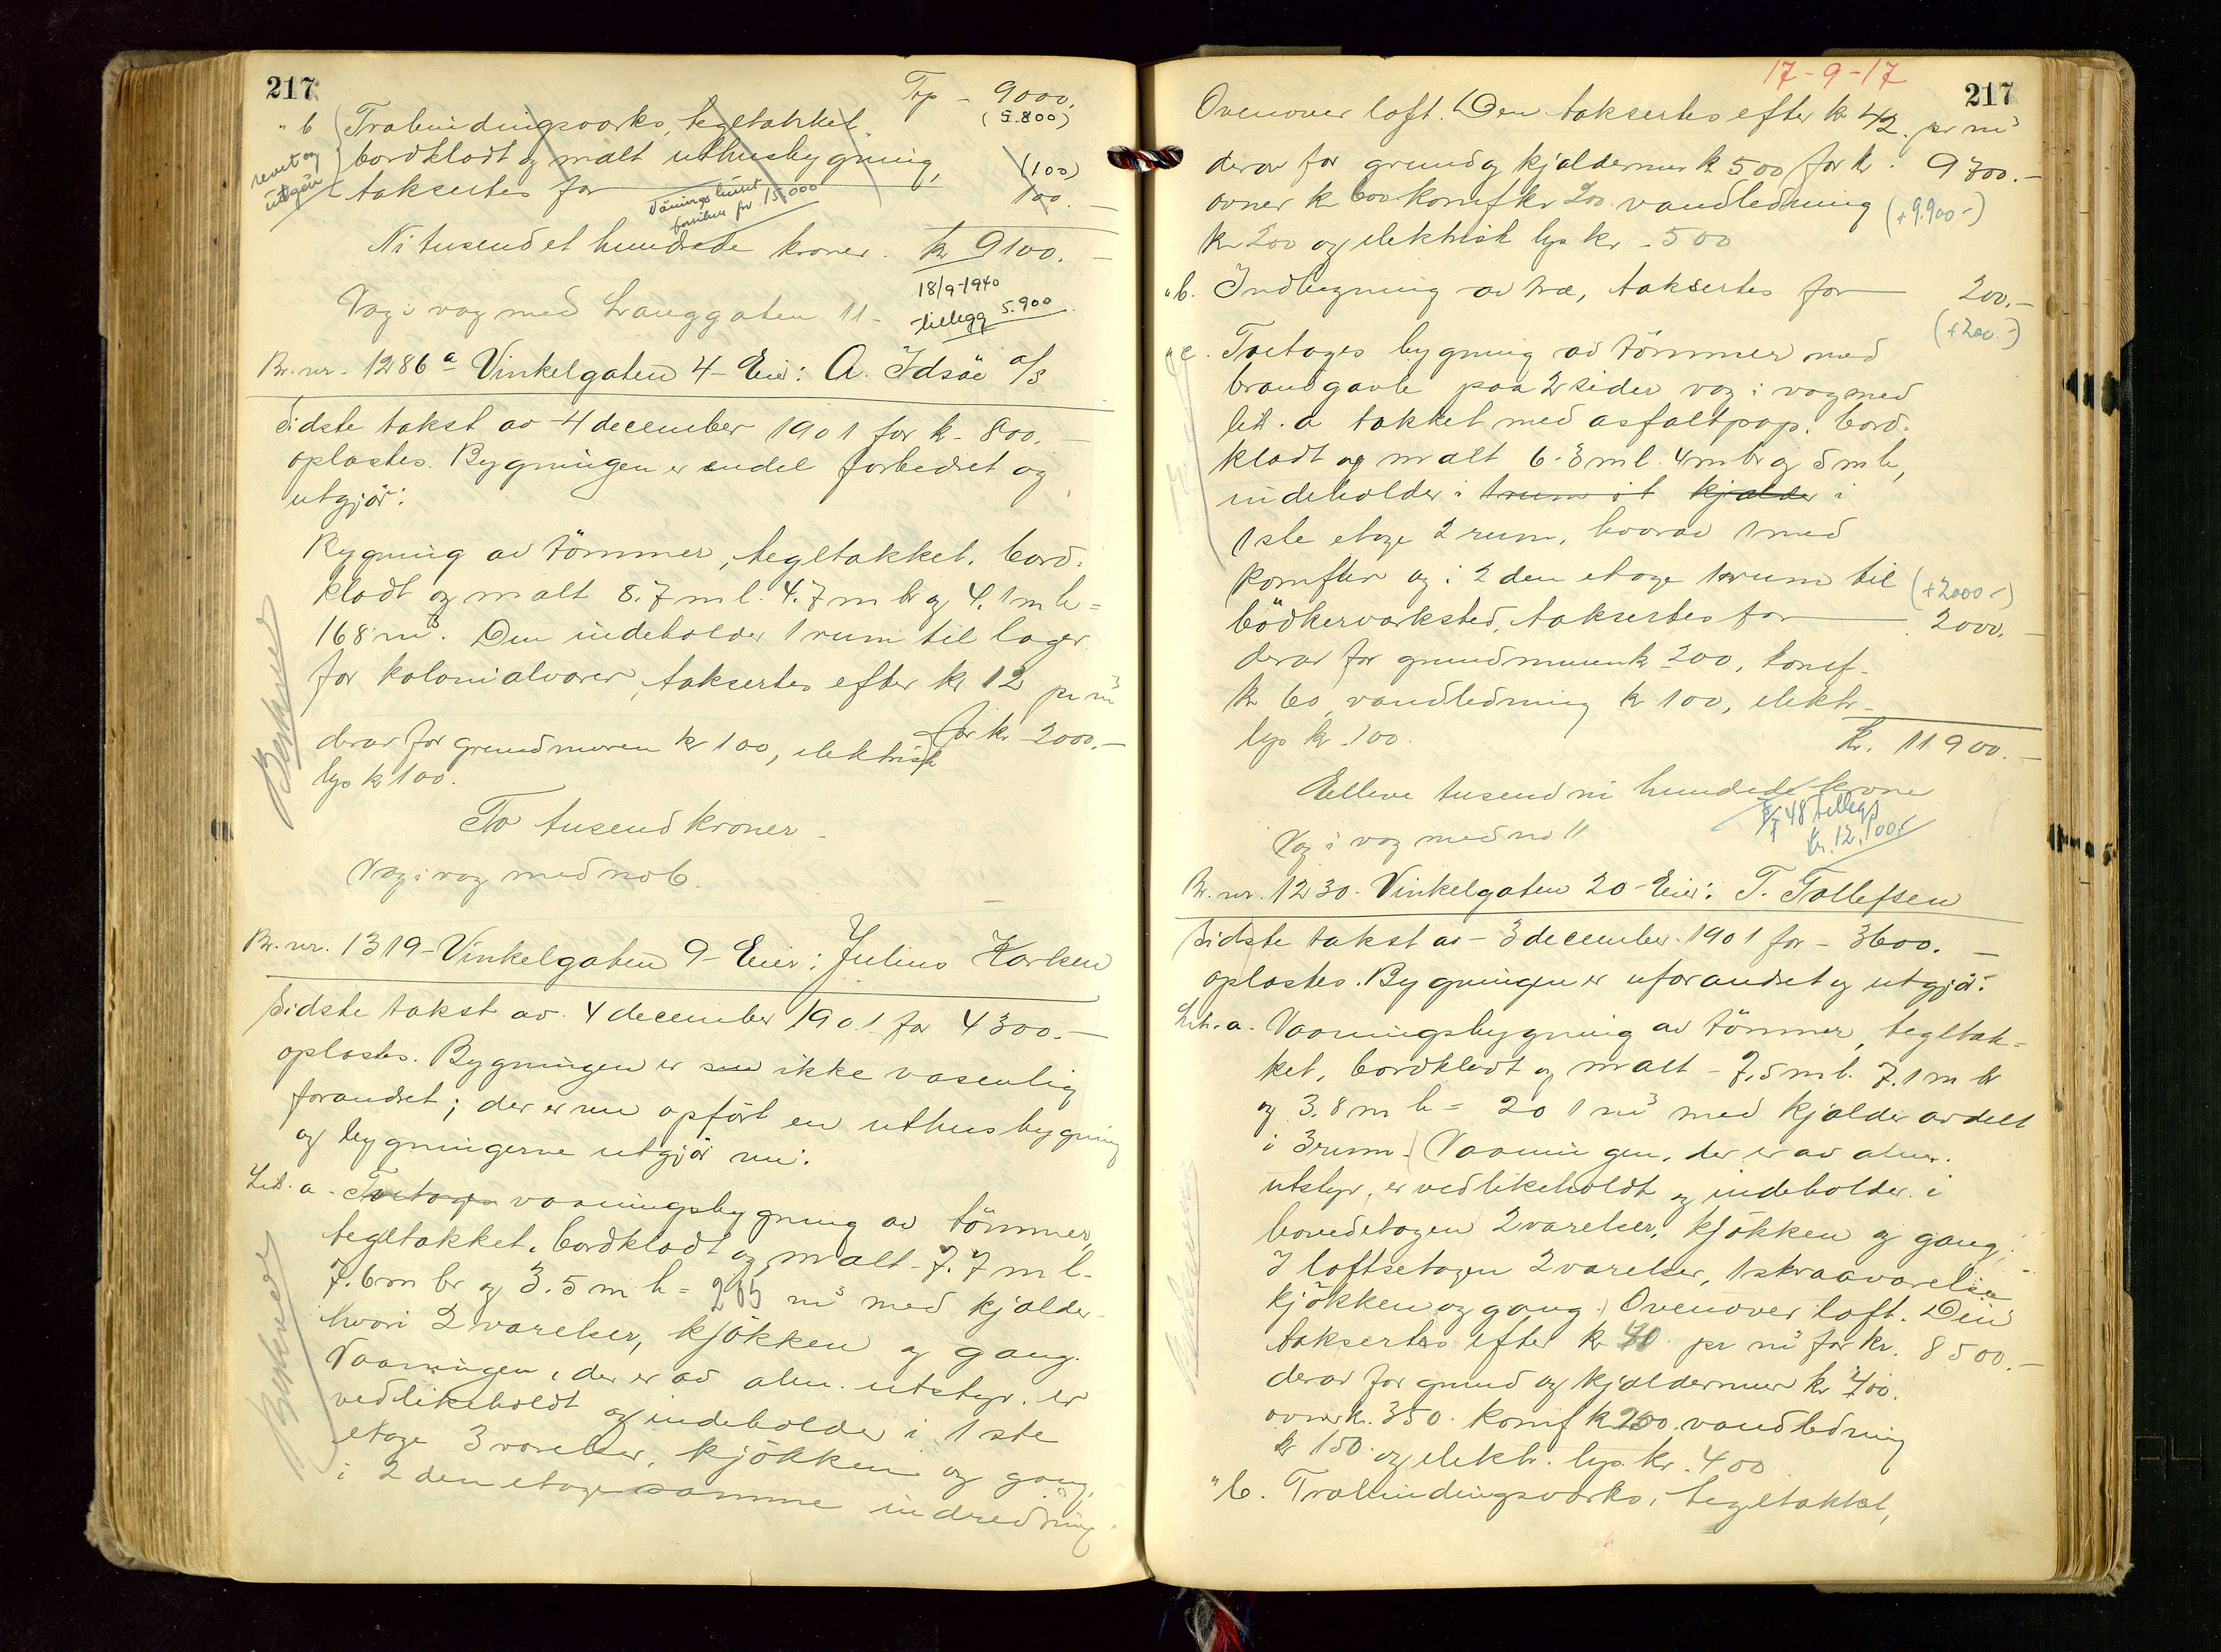 217
Trp - 9000.
(5.800)
" b Træbindingsværks, tegltækket,
bordklædt og malt uthusbygning,
(100)
revet og
utgår
taksertes for 100. -
Våningshuset
15.000
Ni tusend et hundrede kroner. kr 9100. -
18/9-1940
tillegg 5.900
Væg i væg med Langgaten 11 -
Br. nr. 1286 a Vinkelgaten 4 - Eier: A. Idsöe a/s
Sidste takst av 4 december 1901 for k - 800. -
oplæstes. Bygningen er endel forbedret og
utgjör:
Bygning av tömmer, tegltækket, bord-
klædt og malt 8.7 m l. 4.7 m br og 4.1 m h =
168 m³. Den indeholder 1 rum til lager
for kolonialvarer, taksertes efter kr 12 pr m³
for kr 2000. -
derav for grundmuren kr 100, elektrisk
lys k 100.
To tusend kroner -
Væg i væg med no 6.
Br. nr. 1319 - Vinkelgaten 9 - Eier: Julius Karlsen
Sidste takst av 4 december 1901 for 4300. -
oplæstes. Bygningen er ikke væsenlig
forandret; der er nu opfört en uthusbygning
og bygningerne utgjör nu:
Lit. a - Toetages vaaningsbygning av tömmer,
tegltækket, bordklædt og malt - 7.7 m l -
7.6 m br og 3.5 m h = 205 m³ med kjælder
hvori 2 værelser, kjökken og gang.
Vaaningen, der er av alm. utstyr, er
vedlikeholdt og indeholder i 1ste
etage 3 værelser, kjökken og gang,
i 2den etage samme indredning.
17-9-17
217
Ovenover loft. Den taksertes efter kr 42. pr m³
derav for grund og kjældermur k 500 for kr: 9700. -
ovner k 600 komf kr 200 vandledning (+9.900-)
kr 200 og elektrisk lys kr - 500
" b. Indbygning av træ, taksertes for 200. -
(+200.-)
" c. Toetages bygning av tömmer med
brandgavle paa 2 sider væg i væg med
lit. a tækket med asfaltpap, bord-
klædt og malt 6.3 m l. 4 m br og 5 m h,
indeholder i 1 rum i kjælder i
1ste etage 2 rum, hvorav 1 med
komfur og i 2den etage 1 rum til (+2000-)
bödkerværksted, taksertes for 2000. -
derav for grundmuren k 200, komf.
kr 60, vandledning kr 100, elektr.
lys kr. 100.
kr. 11900. -
Elleve tusend ni hundrede kroner
48 tillegg
kr. 12.100
Væg i væg med no 11
Br. nr. 1230 - Vinkelgaten 20 - Eier: T. Tollefsen
Sidste takst av - 3 december 1901 for - 3600. -
oplæstes. Bygningen er uforandret og utgjör:
Lit. a. Vaaningsbygning av tömmer, tegltæk-
ket, bordklædt og malt - 7.5 m l. 7.1 m br
og 3.8 m h = 201 m³ med kjælder avdelt
i 3 rum. Vaaningen, der er av alm.
utstyr, er vedlikeholdt og indeholder i
hovedetagen 2 værelser, kjökken og gang,
I loftsetagen 2 værelser, 1 skraaværelse
kjökken og gang. Ovenover loft. Den
taksertes efter kr 40 pr m³ for kr. 8500. -
derav for grund og kjældermur kr 400.
ovner k. 350. komf k 200. vandledning
kr 150. og elektr. lys. kr. 400
" b. Træbindingsværks, tegltækket,